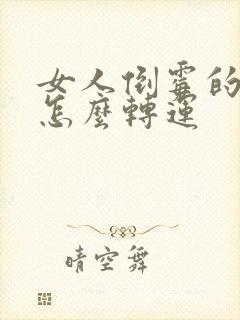 女人倒霉的
怎麼轉運
晴空舞